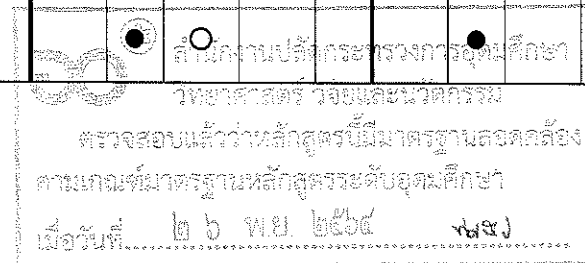 สำนักงานปลัดกระทรวงการอุดมศึกษา
วิทยาศาสตร์ วิจัยและนวัตกรรม
ตรวจสอบแล้วว่าหลักสูตรนี้มีมาตรฐานสอดคล้อง
ตามเกณฑ์มาตรฐานหลักสูตรระดับอุดมศึกษา
เมื่อวันที่ ๒๖ พ.ย. ๒๕๖๔